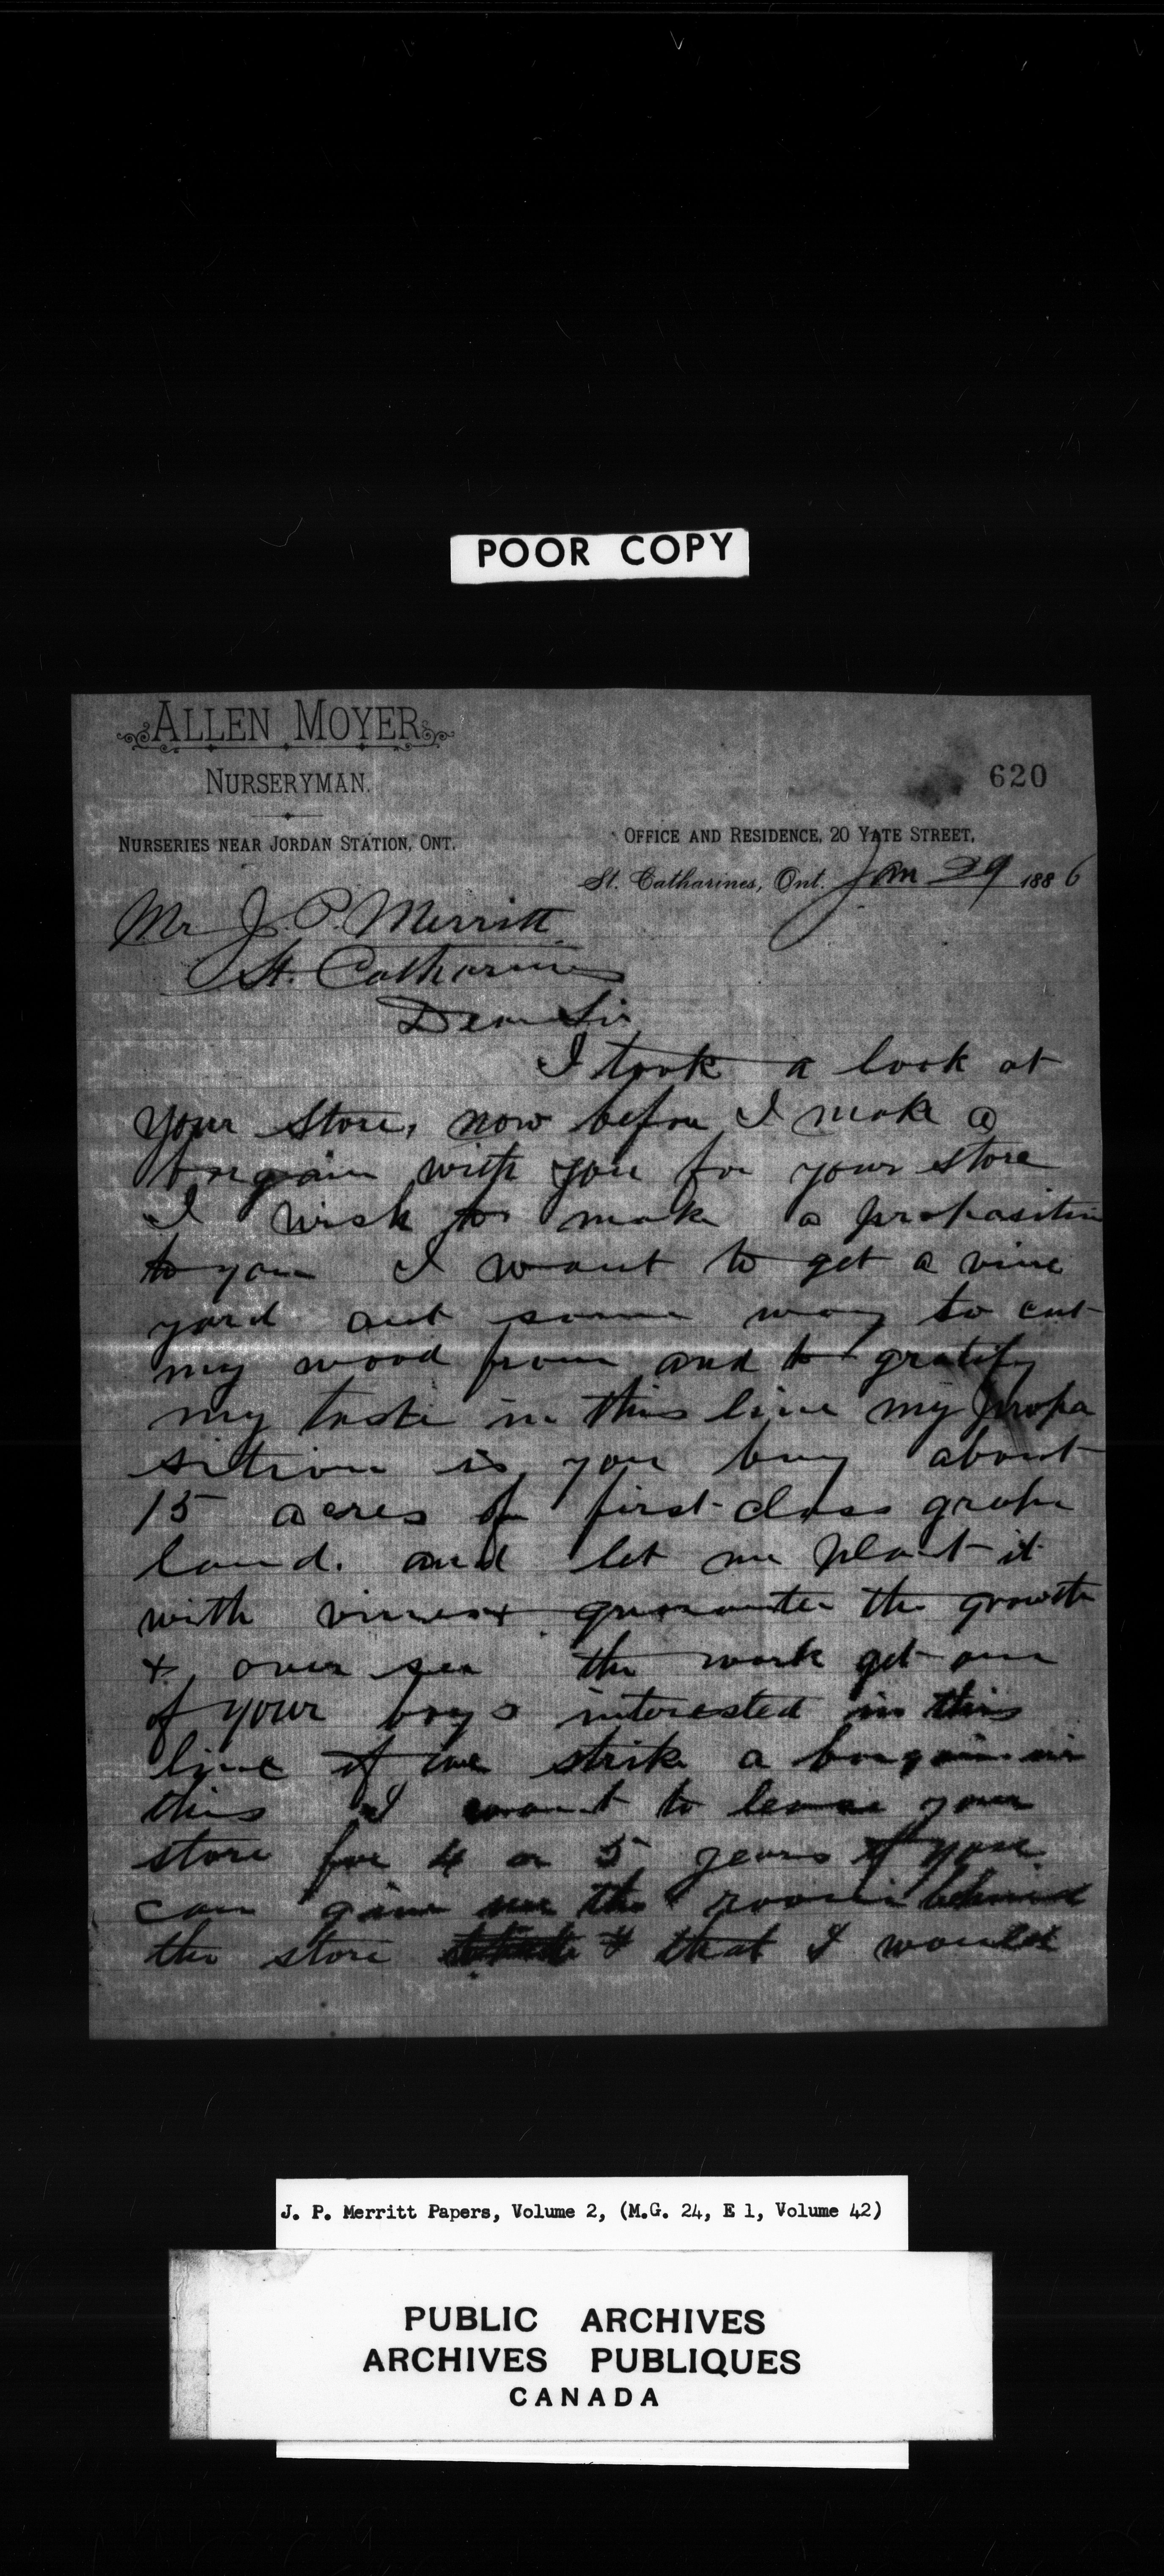 POOR COPY
ALLEN MOYER
NURSERYMAN.
620
NURSERIES NEAR JORDAN STATION, ONT.
OFFICE AND RESIDENCE, 20 YATE STREET,
St. Catharines, Ont. Jan 29 1886
Mr J. P. Merritt
St. Catharines
Dear Sir
I took a look at
your store, now before I make a
bargain with you for your store
I wish to make a propasition
to you I want to get a vine
yard out some way to cut
my wood from and to gratify
my taste in this line my propa
sition is you buy about
15 acres of first class grape
land. and let me plant it
with vines & guarantee the growth
& over see the work get one
of your boys interested in this
line if we strike a bargain in
this I want to lease your
store for 4 or 5 years if you
can give me the room behind
the store & that I would
J. P. Merritt Papers, Volume 2, (M.G. 24, E 1, Volume 42)
PUBLIC ARCHIVES
ARCHIVES PUBLIQUES
CANADA